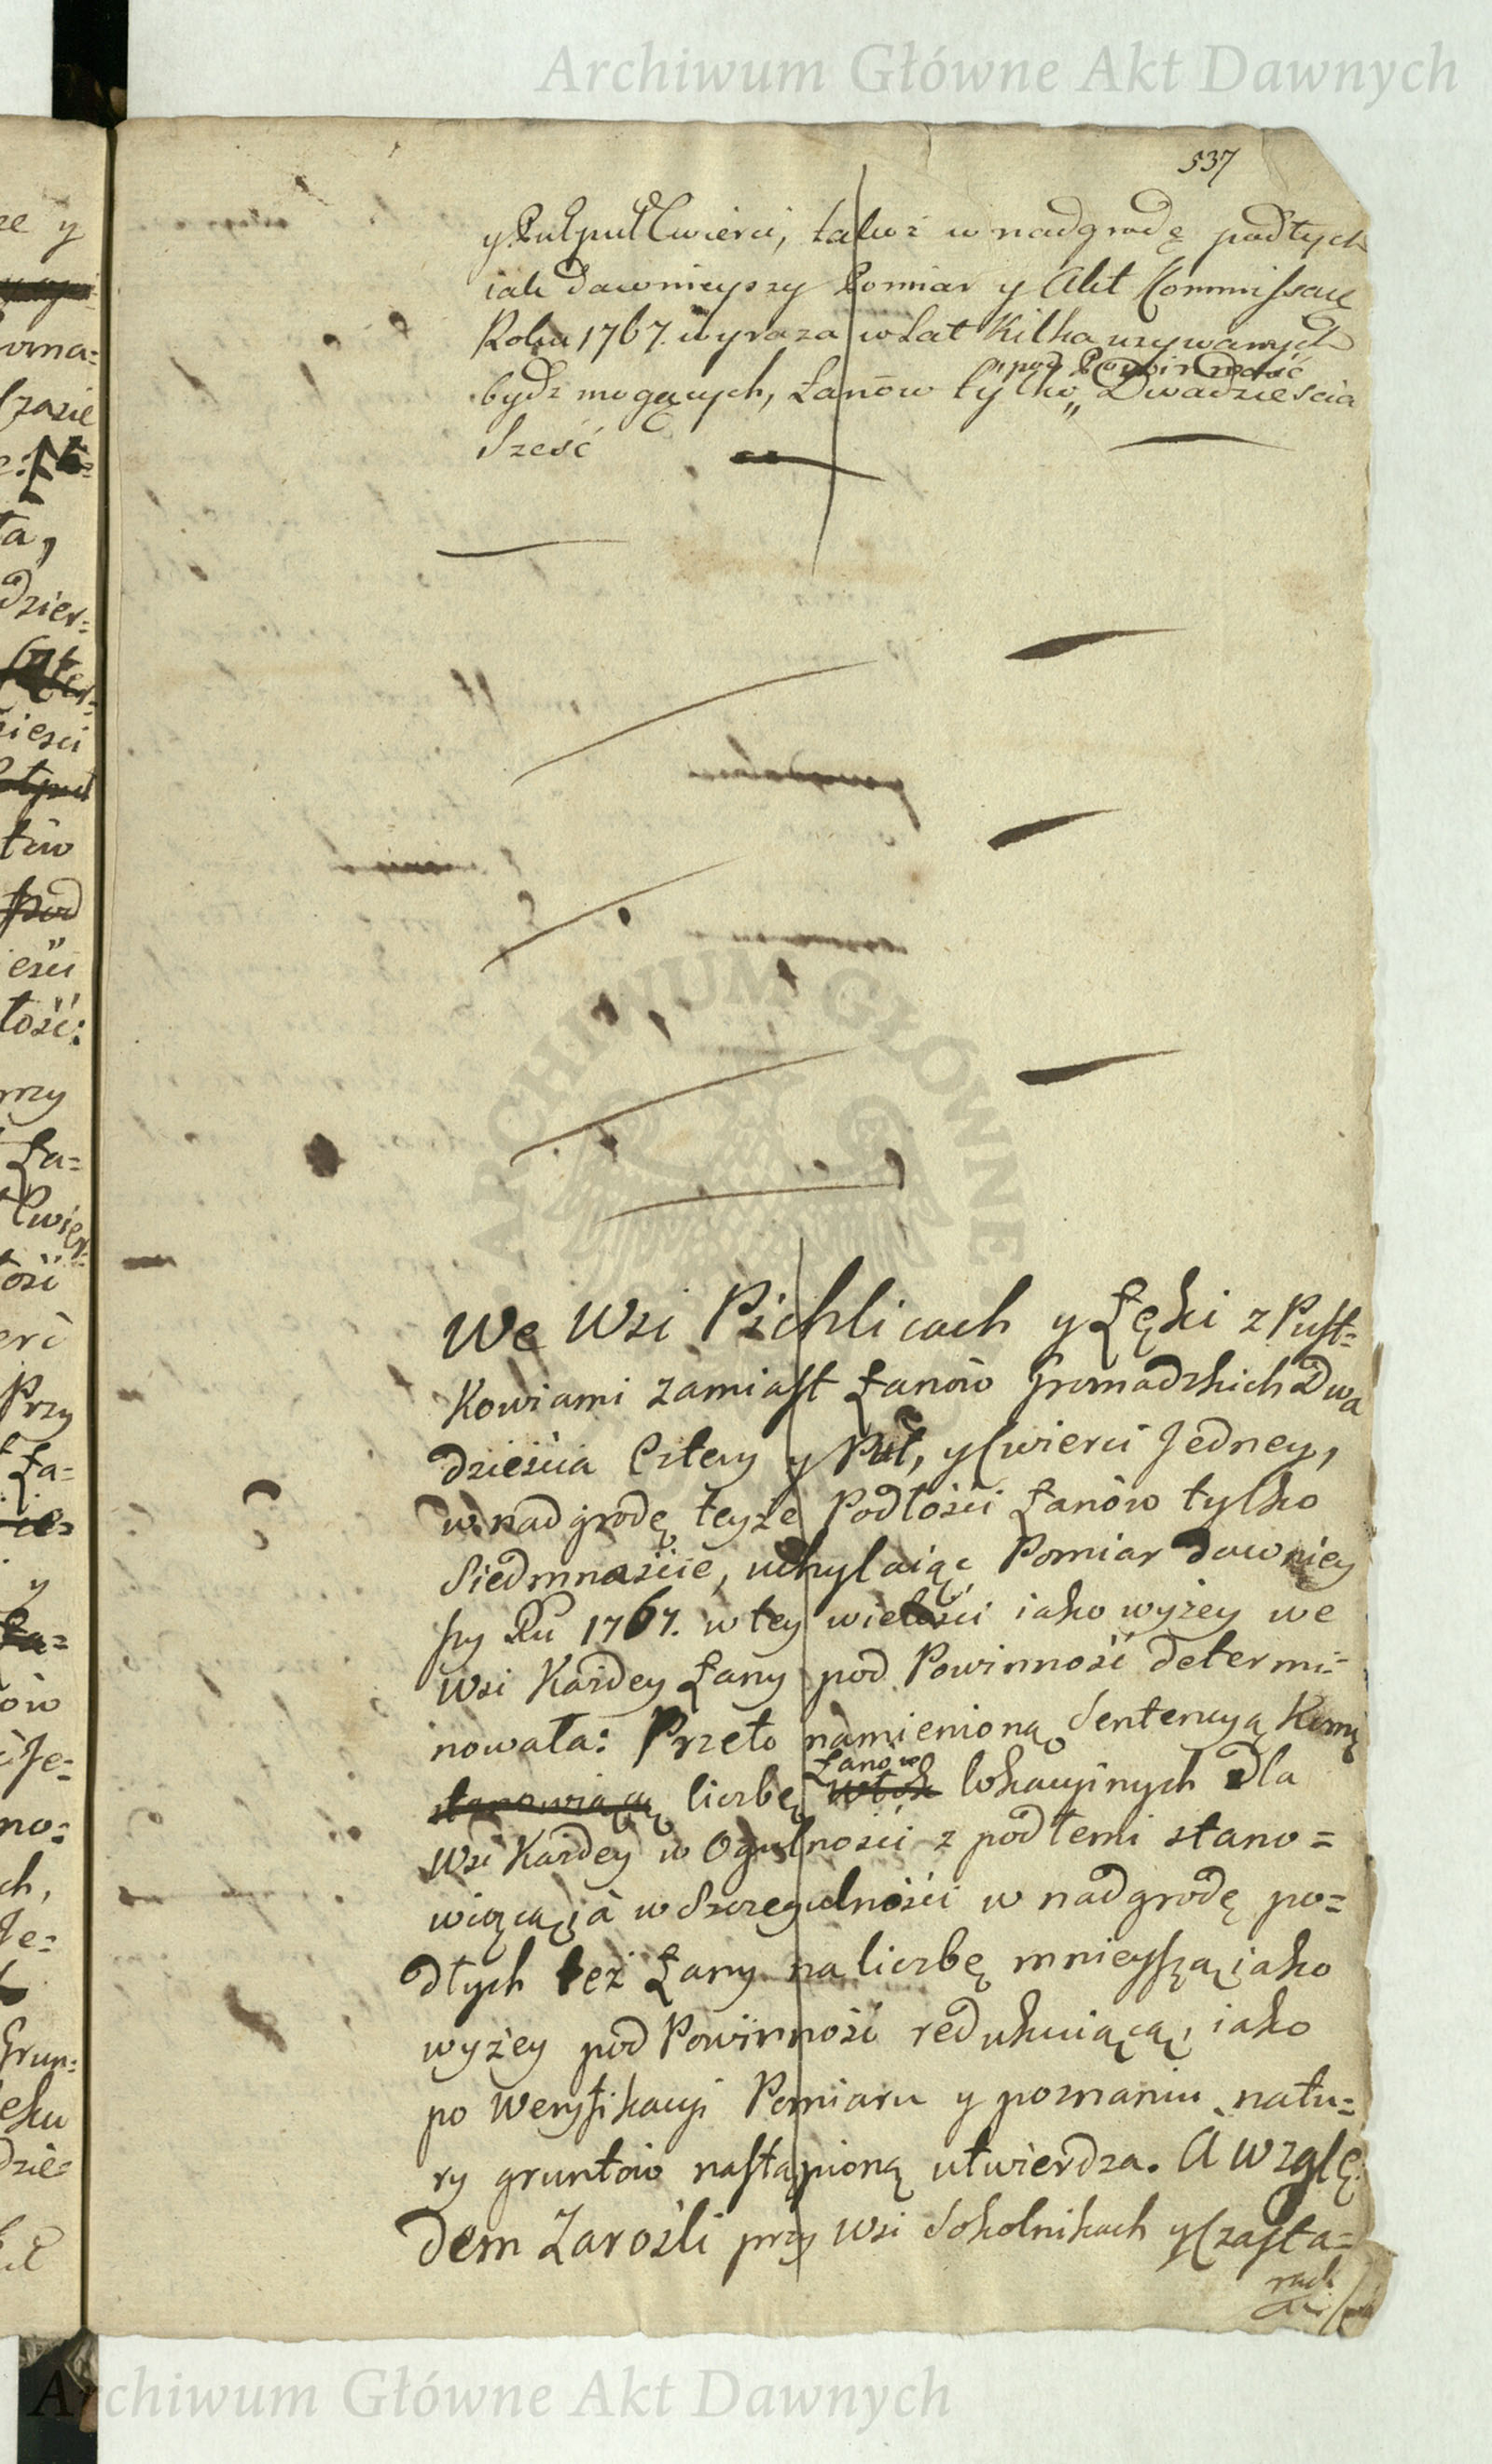 Archiwum Główne Akt Dawnych
537
y Pułpuł Cwierci, takoż w nadgrodę podłych
iak dawnieyszy Pomiar y Akt Kommissaÿ
Roku 1767. wyraza w Lat Kilka uzywanych
pod Powinność
bydz mogących, Łanów tylko „ Dwadzieścia
Szesć
ARCHIWUM GŁÓWNE
We Wsi Pichlicach y Łęki z Pust=
kowiami zamiast Łanów Gromadzkich Dwa
dzieścia Cztery y Puł, y Cwierci Jedney,
w nadgrodę teyże Podłości Łanów tylko
Siedmnaście, uchylaiąc Pomiar dawniey
szy Rū 1767. w tey wielości iako wyżey we
Wsi Każdey Łany pod Powinność determi=
nowała: Przeto namienioną Sentencyą
Łanów
stanowiącą liczbę Włok lokacyinych dla
Wsi Każdey w Ogulności z podłemi stano=
wiącą, à w Szczegulności w nadgrodę po=
dłych też Łany na liczbę mnieyszą iako
wyżey pod Powinność redukuiącą, iako
po Weryfikacyi Pomiaru y poznaniu natu=
ry gruntów nastąpioną utwierdza. A Wzglę
dem Zarośli przy Wsi Sokolnikach y Czasta=
rach
Archiwum Główne Akt Dawnych